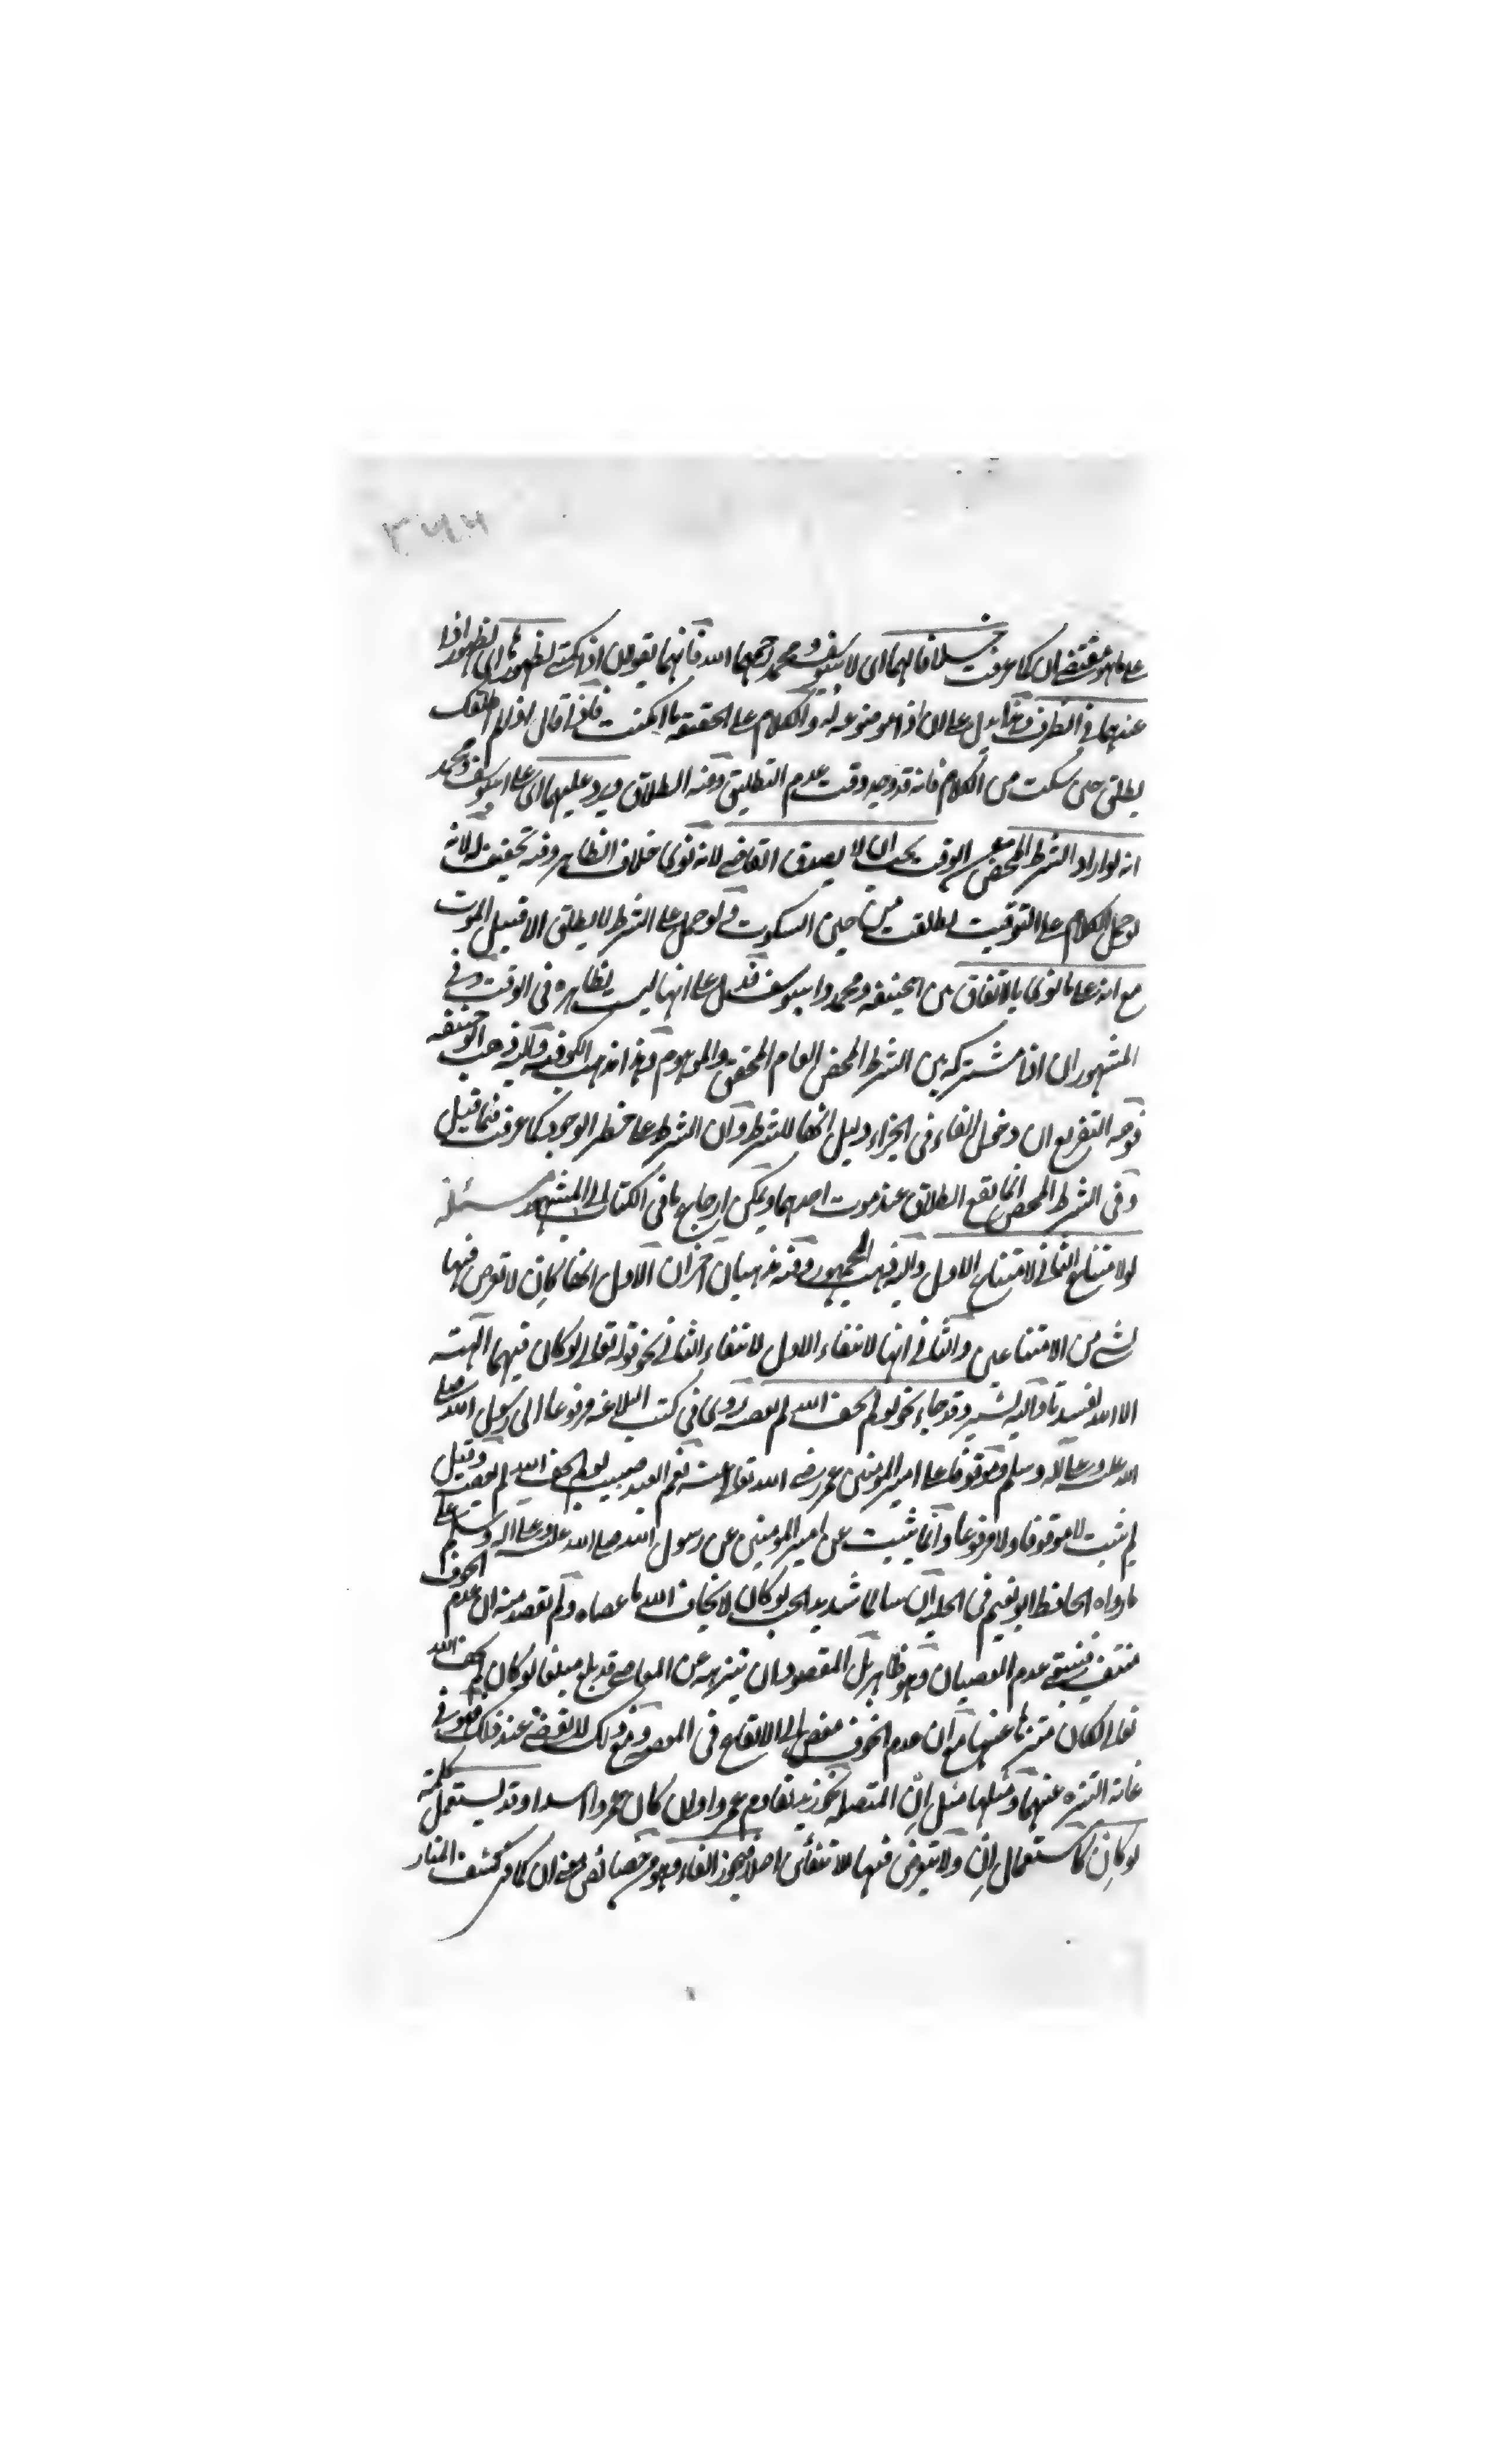 ٣٧٧
على ما هو مقتضى ان كما عرفت خلافا لهما اى لابى يوسف ومحمد رحمهما الله فانهما يقولان اذا كمتى لظهورها اى لظهور اذا
عندهما فى الظرف وهذا يدل على ان اذا موضوعة له والكلام على الحقيقة ما امكنت فاذا قال اذا لم اطلقك
يطلق حين سكت من الكلام فانه قد وجد وقت عدم التطليق وفيه الطلاق ويرد عليهما اى على ابى يوسف ومحمد
انه لو اراد الشرط المحض مع الوقت يجب ان لا يصدق القاضى لانه نوى خلاف الظاهر وفيه تخفيف له لانه
لو حمل الكلام على التوقيت لطلقت من حين السكوت ولو حمل على الشرط لا يطلق الا قبيل الموت
مع انه على ما نوى بالاتفاق بين ابى حنيفة ومحمد وابى يوسف فدل على انها ليست بظاهرة فى الوقت وفى
المشهور ان اذا مشتركة بين الشرط المحض العام المحقق والموهوم وهذا مذهب الكوفة واليه ذهب ابو حنيفة
فوجه التفريع ان دخول الفاء فى الجزاء دليل انها للشرط وان الشرط على خطر الوجود كما عرفت فيما قبل
وفى الشرط المحض انما يقع الطلاق عند موت احدهما ويمكن ارجاع ما فى الكتاب الى المشهور مسئلة
لو لامتناع الثانى لامتناع الاول واليه ذهب الجمهور وفيه مذهبان آخران الاول انها كان لا تعرض فيها
لشىء من الامتناعين والثانى انها لانتفاء الاول لانتفاء الثانى نحو قوله تعالى لو كان فيهما آلهة
الا الله لفسدتا واليه يشير وقد جاء نحو لو لم يخف الله لم يعصه روى فى كتب البلاغة مرفوعا الى رسول الله صلى
الله عليه وعلى آله وسلم وموقوفا على امير المؤمنين عمر رضى الله تعالى عنه نعم العبد صهيب لو لم يخف الله لم يعصه وقيل
لم يثبت لا موقوفا ولا مرفوعا وانما يثبت عن امير المؤمنين عن رسول الله صلى الله عليه وعلى آله وسلم على
ما رواه الحافظ ابو نعيم فى الحلية ان سالما شديد الحب لو كان لا يخاف الله ما عصاه ولم يقصد منه ان عدم الخوف
منتف فينتفى عدم العصيان وهو ظاهر بل المقصود ان تنزهه عن المعاصى قد بلغ مبلغا لو كان لم يخف الله
تعالى لكان متنزها عنها مع ان عدم الخوف مفض الى الايقاع فى المعصية ومع ذلك لا يفضى عند ذلك فهو فى
غاية التنزه عنها ومثلها مثل ان المتصلة نحو زيد يقاوم عمروا وان كان عمروا اسدا وقد يستعمل كلمة
لو كان كاستعمال ان ولا يتعرض فيها للانتفائين اصلا فيجوز الفاء وهو من خصائص معنى ان كما فى كشف المنار